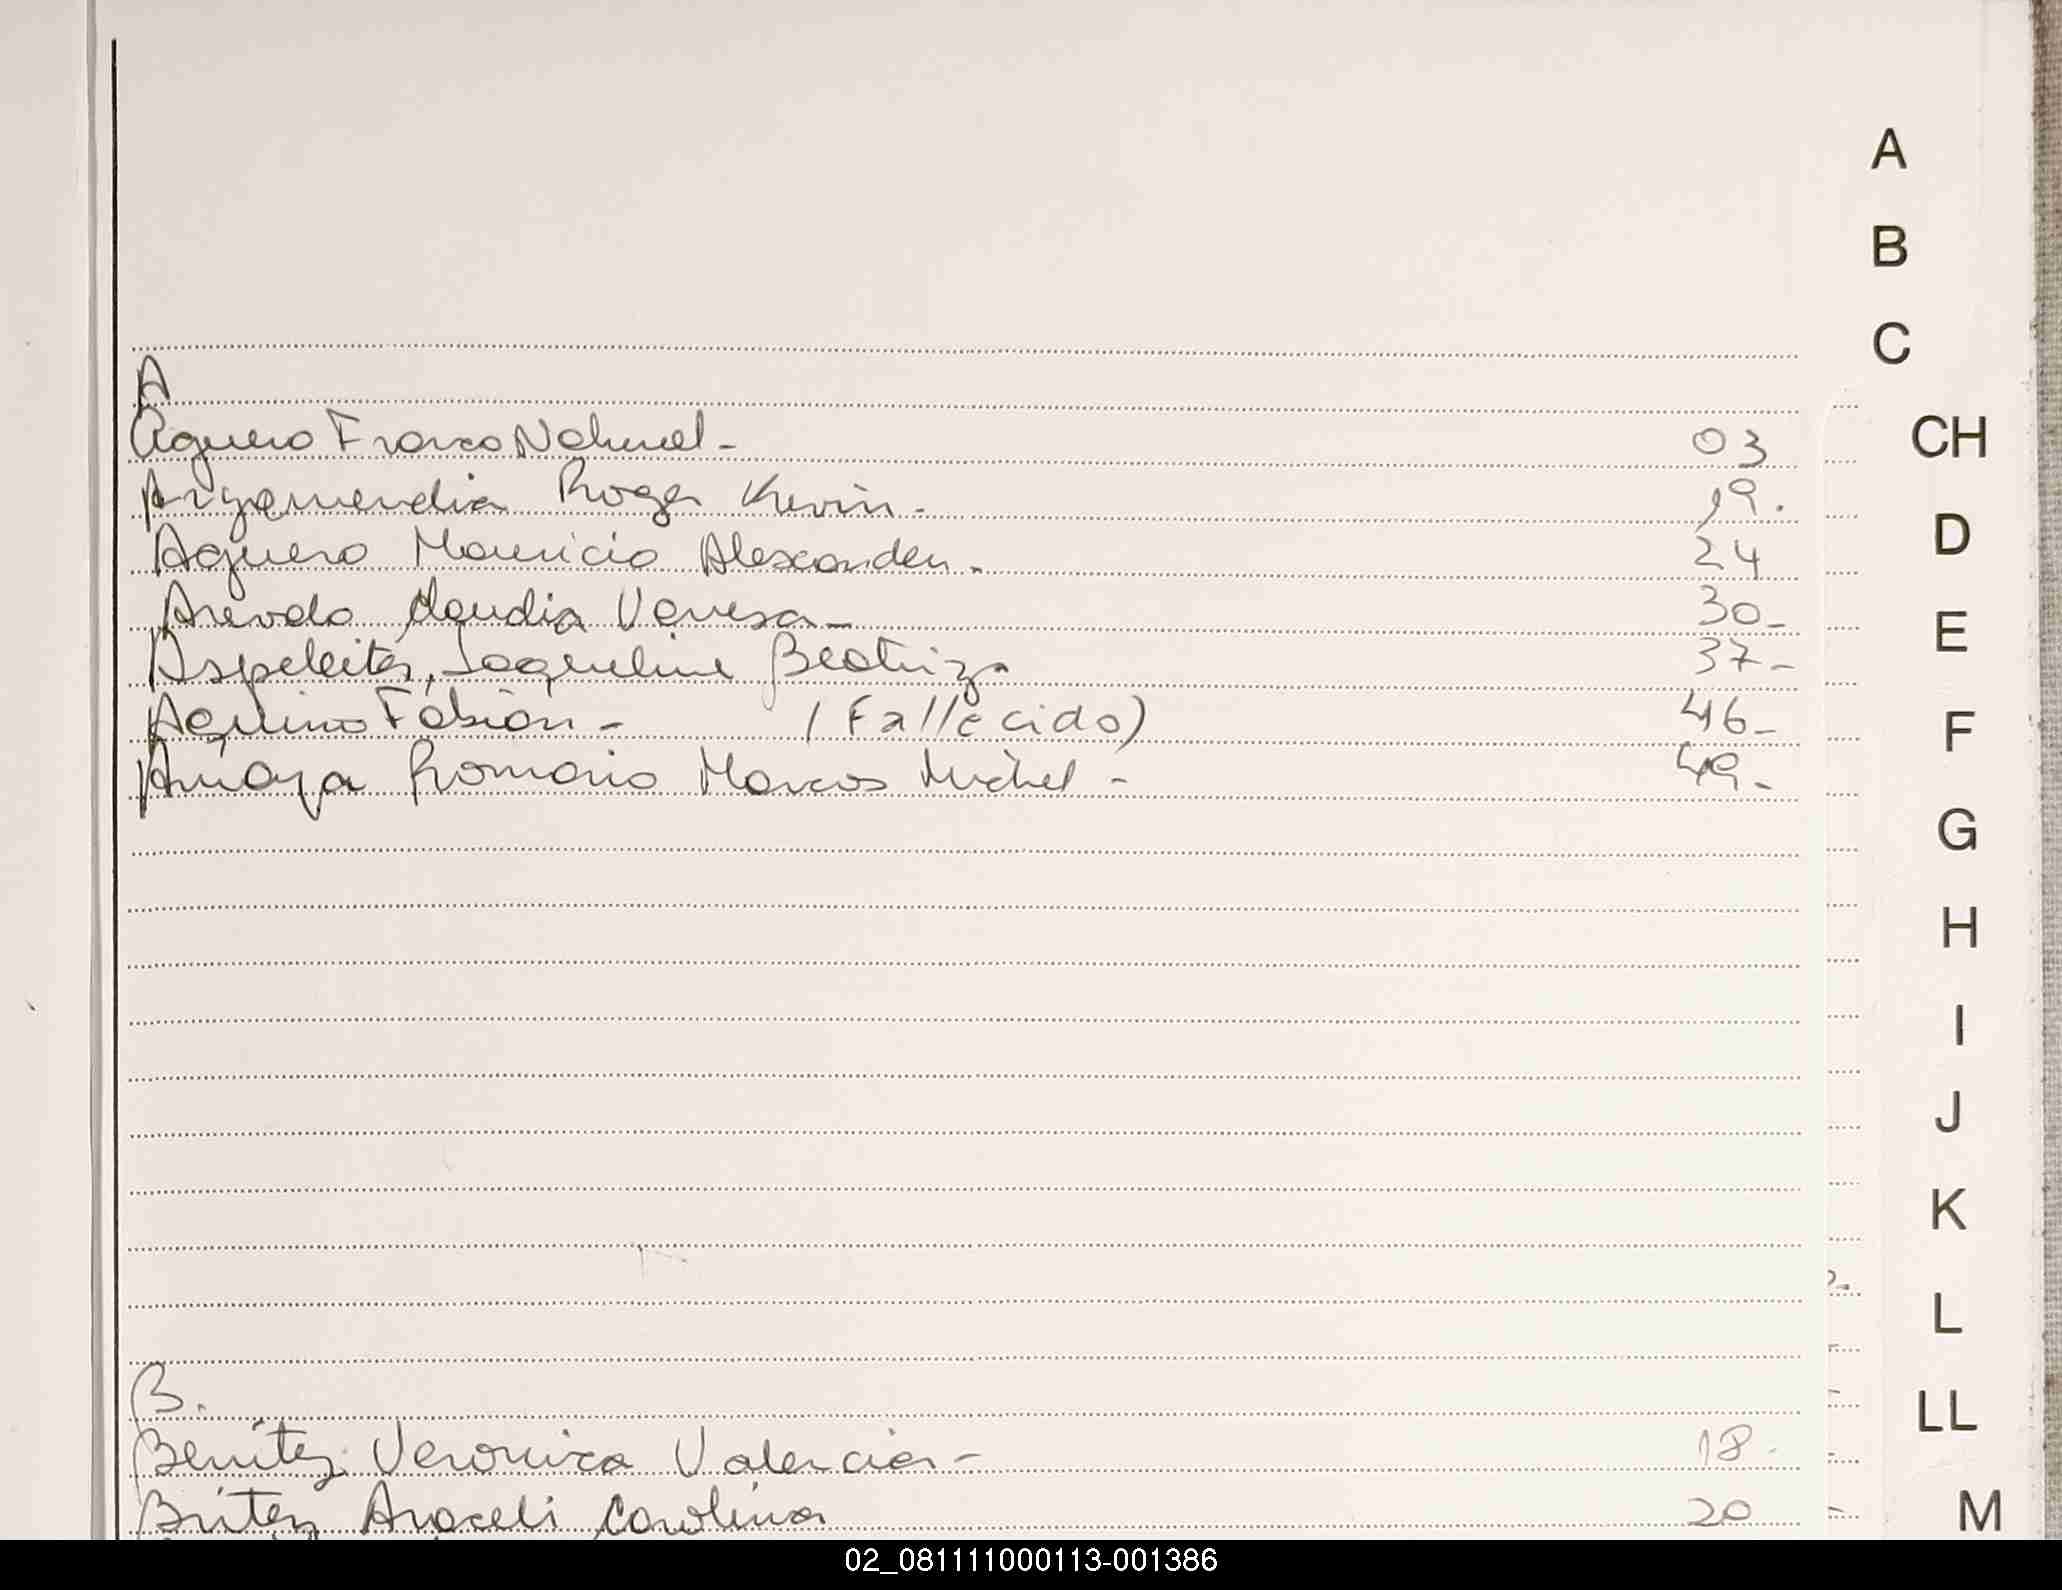 A
B
C
CH
D
E
F
G
H
I
J
K
L
LL
M
A
Aguero Franco Nahuel - 03
Arizamendia Roger Kevin - 19.
Aguero Mauricio Alexander - 24
Arevalo Claudia Vanesa - 30-
Aspeleiter, Jaqueline Beatriz - 37-
Aquino Fabián - (Fallecido) 46-
Amaya Romario Marcos Michel - 49-
B.
Benítez Veronica Valencia - 18-
Britez Araceli Carolina 20
02_081111000113-001386